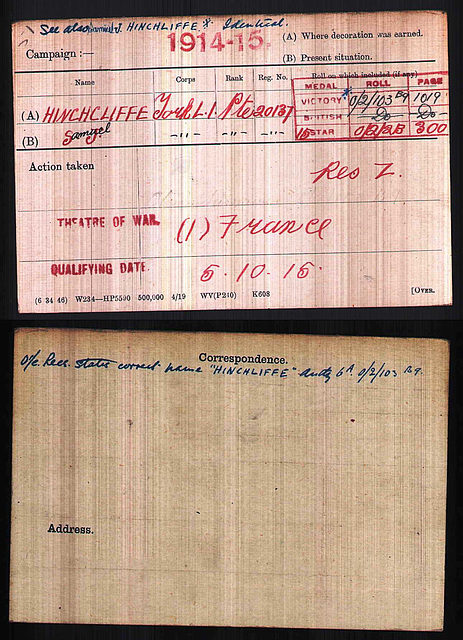 See also J. HINCHLIFFE * Identical.
Campaign :— 1914-15.
(A) Where decoration was earned.
(B) Present situation.
Name Corps Rank Reg. No. Roll on which included (if any)
MEDAL ROLL PAGE
(A) HINCHCLIFFE York L.I. Pte 20137
VICTORY * O/2/103 B9 1019
(B) Samuel —„— —„—
BRITISH Do Do
15 STAR O/2/2B 300
Action taken
Res Z.
THEATRE OF WAR. (1) France
QUALIFYING DATE. 5.10.15.
(6 34 46) W234—HP5590 500,000 4/19 WV(P240) K608 [OVER.
Correspondence.
O/c Recs. states correct name "HINCHLIFFE" O/2/103 B9.
Address.